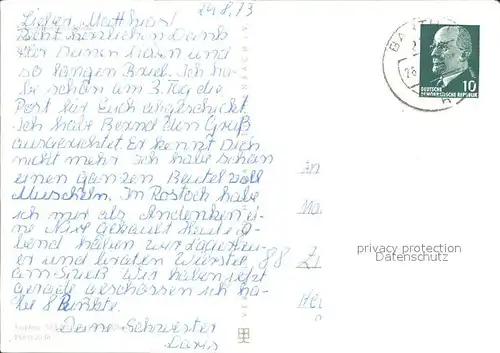 24.8.73
Lieber Matthias!
Recht herzlichen Dank
für Deinen lieben und
so langen Brief. Ich ha-
be schon am 3. Tag die
Post für Euch abgeschickt.
Ich habe Bernd den Gruß
ausgerichtet. Er kennt Dich
nicht mehr. Ich habe schon
einen ganzen Beutel voll
Muscheln. Im Rostock habe
ich mir als Andenken ei-
ne gekauft Heute A-
bend haben wir Lagerfeu-
er und braten Würstel
am Spieß Wir haben jetzt
gerade geschossen ich ha-
be 8 Punkte.
Deine Schwester
Doris
BARTH
10
DEUTSCHE
DEMOKRATISCHE REPUBLIK
88
privacy protection
Datenschutz